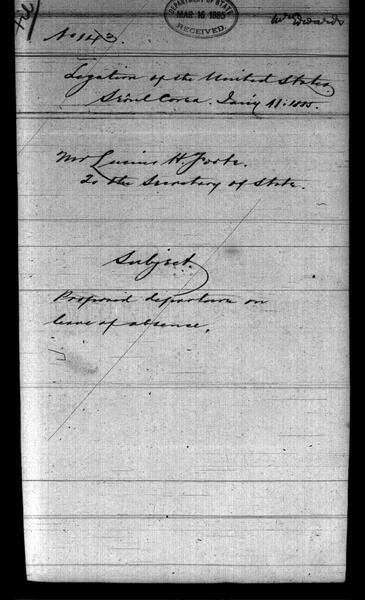 DEPARTMENT OF STATE
MAR 16 1885
RECEIVED.
No 143.
Legation of the United States,
Séoul Corea. Jan'y 11. 1885.
Mr Lucius H. Foote.
To the Secretary of State.
Subject.
Proposed departure on
leave of absence.